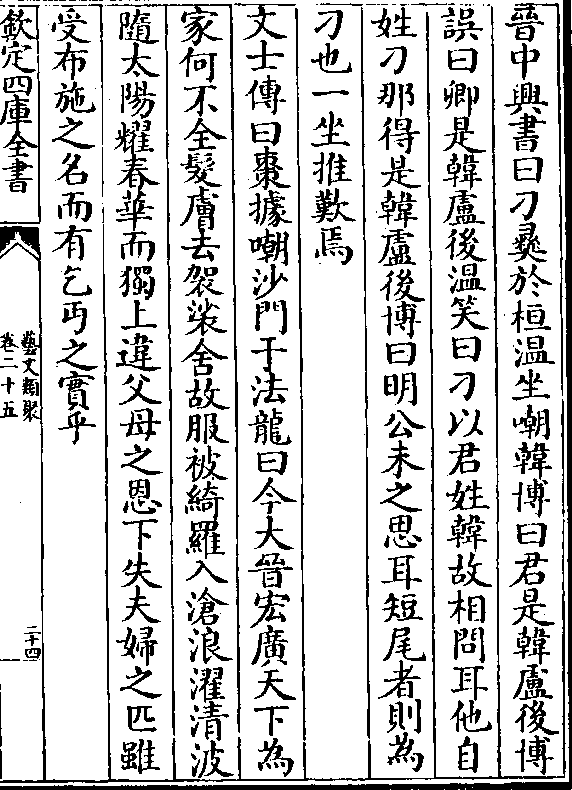 晉中興書曰刁彛於桓温坐嘲韓博曰君是韓盧後博
誤曰卿是韓盧後温笑曰刁以君姓韓故相問耳他自
姓刁那得是韓盧後博曰明公未之思耳短尾者則為
刁也一坐推歎焉
文士傳曰棗據嘲沙門于法龍曰今大晉宏廣天下為
家何不全髮膚去袈裟舍故服被綺羅入滄浪濯清波
隨太陽耀春華而獨上違父母之恩下失夫婦之匹雖
受布施之名而有乞丐之實乎
欽定四庫全書
藝文類聚
卷二十五
二十四